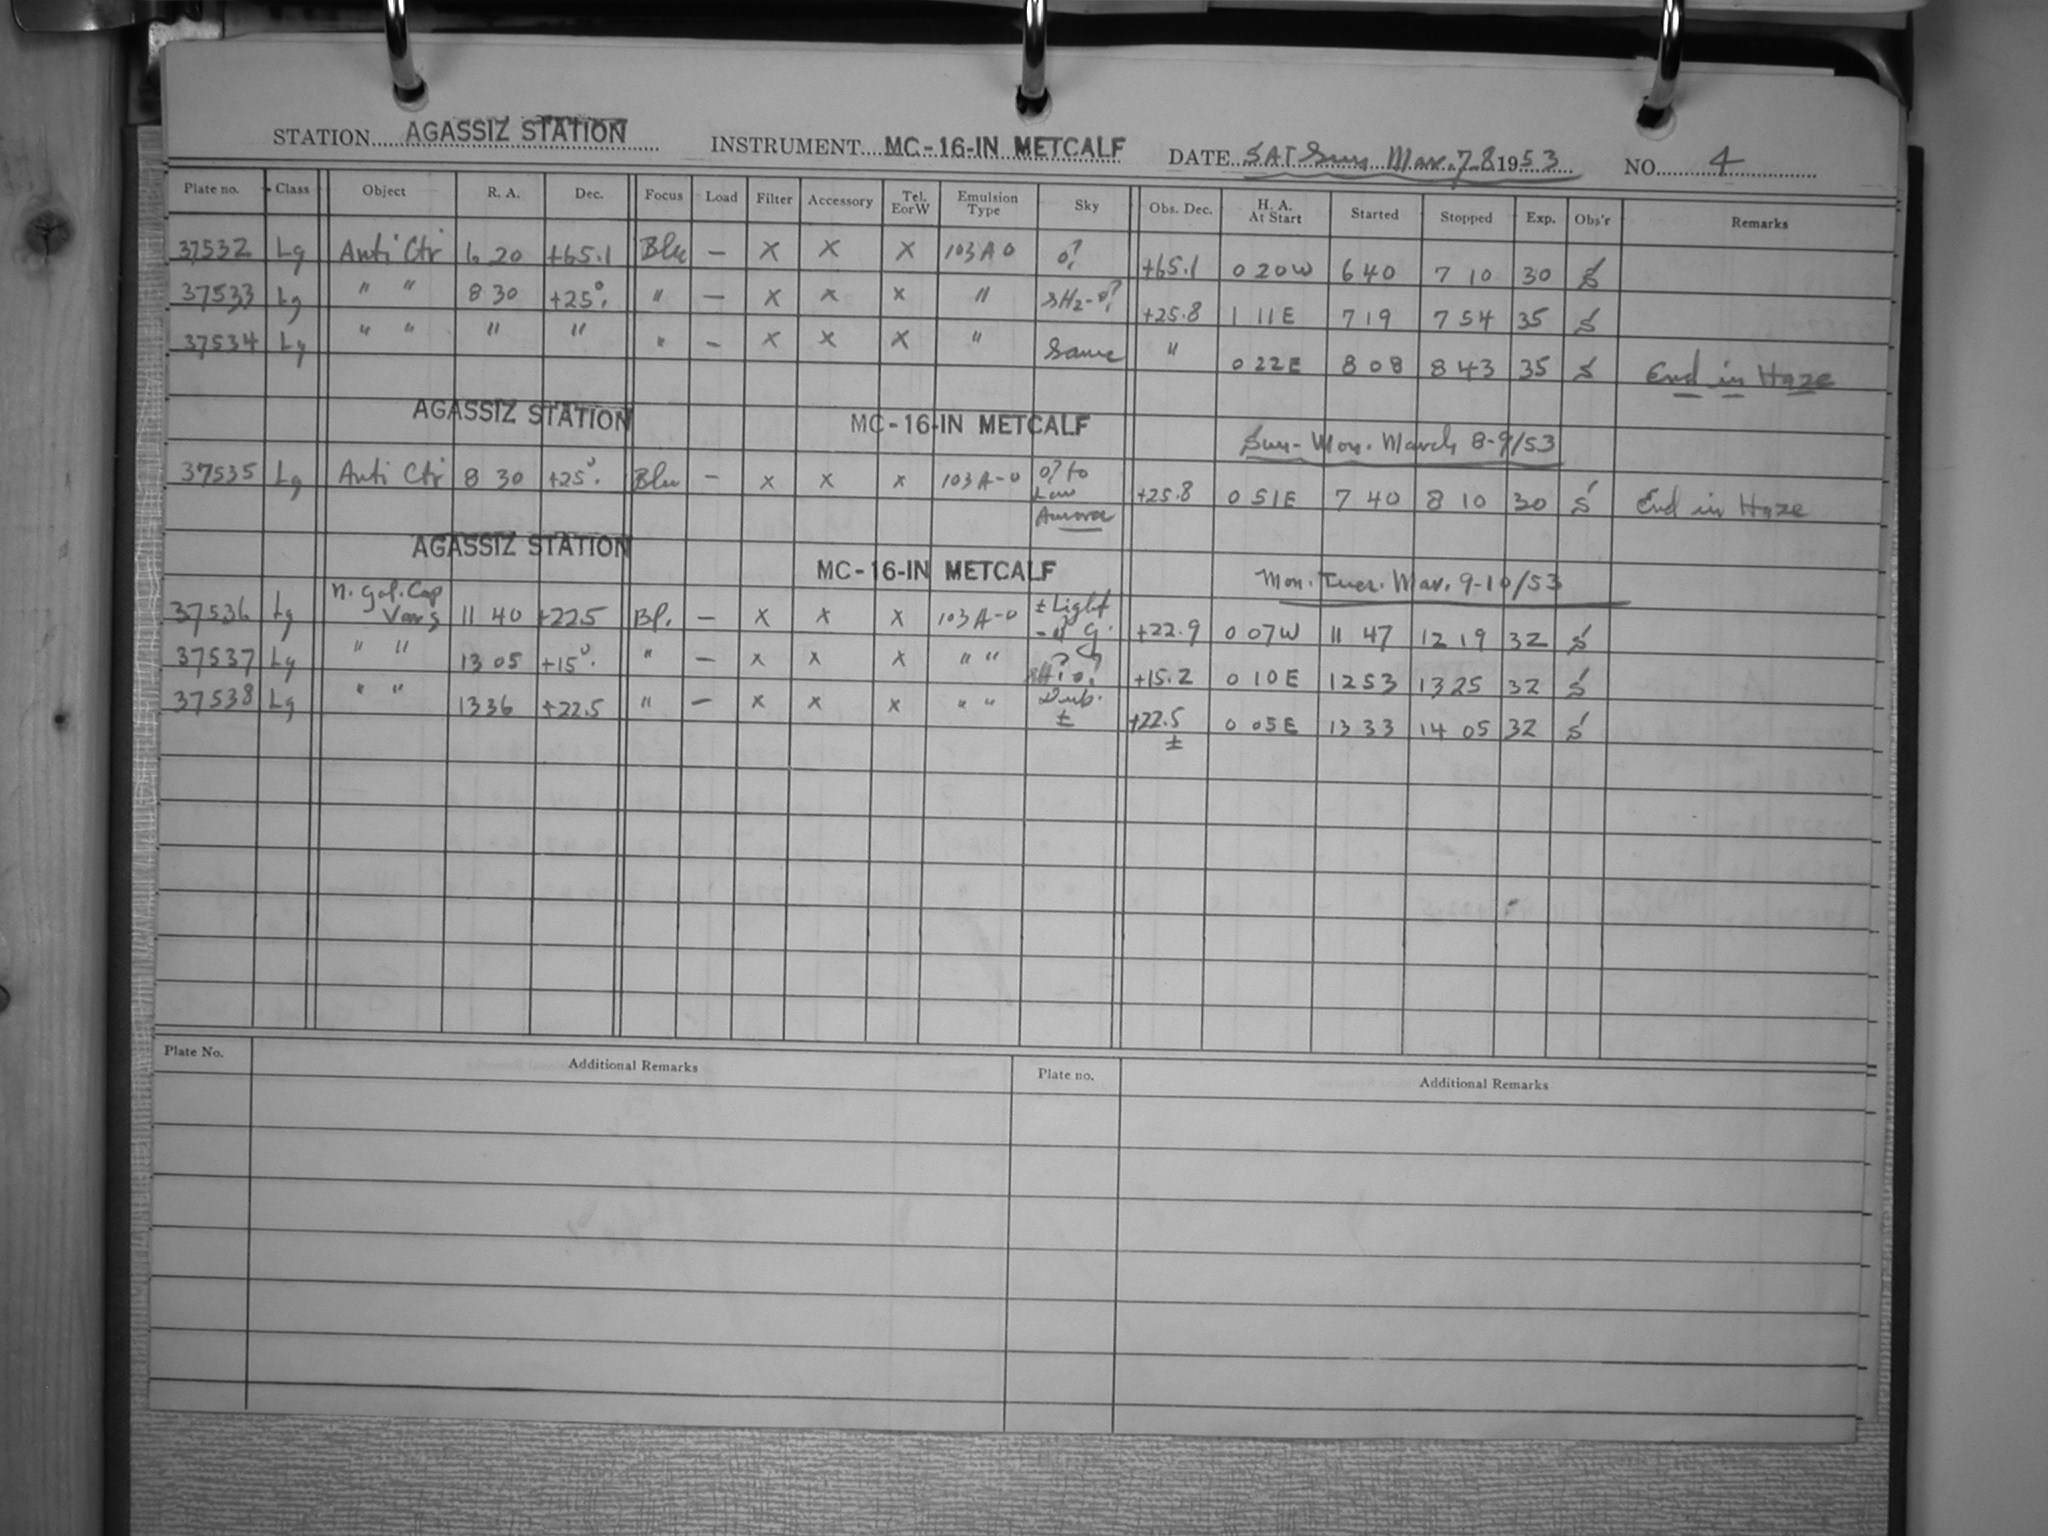 STATION AGASSIZ STATION INSTRUMENT MC-16-IN METCALF DATE SAT Sun Mar. 7-8 1953 NO. 4
Plate no. Class Object R. A. Dec. Focus Load Filter Accessory Tel. EorW Emulsion Type Sky Obs. Dec. H. A. At Start Started Stopped Exp. Obs'r Remarks
37532 Lg Anti Ctr 6 20 +65.1 Blu — X X X 103A0 o? +65.1 0 20W 6 40 7 10 30 S
37533 Lg " " 8 30 +25°. " — X X X " sH2-o? +25.8 1 11E 7 19 7 54 35 S
37534 Lg " " " " " — X X X " Same " 0 22E 8 08 8 43 35 S End in Haze
AGASSIZ STATION MC-16-IN METCALF Sun-Mon. March 8-9/53
37535 Lg Anti Ctr 8 30 +25°. Blu — X X X 103A-0 o? to Low Aurora +25.8 0 51E 7 40 8 10 30 S End in Haze
AGASSIZ STATION MC-16-IN METCALF Mon. Tues. Mar. 9-10/53
37536 Lg n. gal. Cap Vars 11 40 +22.5 Bl. — X X X 103A-0 ± Light +22.9 0 07W 11 47 12 19 32 S
37537 Lg " " 13 05 +15°. " — X X X " " +15.2 0 10E 12 53 13 25 32 S
37538 Lg " " 13 36 +22.5 " — X X X " " Dub. ± +22.5 ± 0 05E 13 33 14 05 32 S
Plate No. Additional Remarks Plate no. Additional Remarks